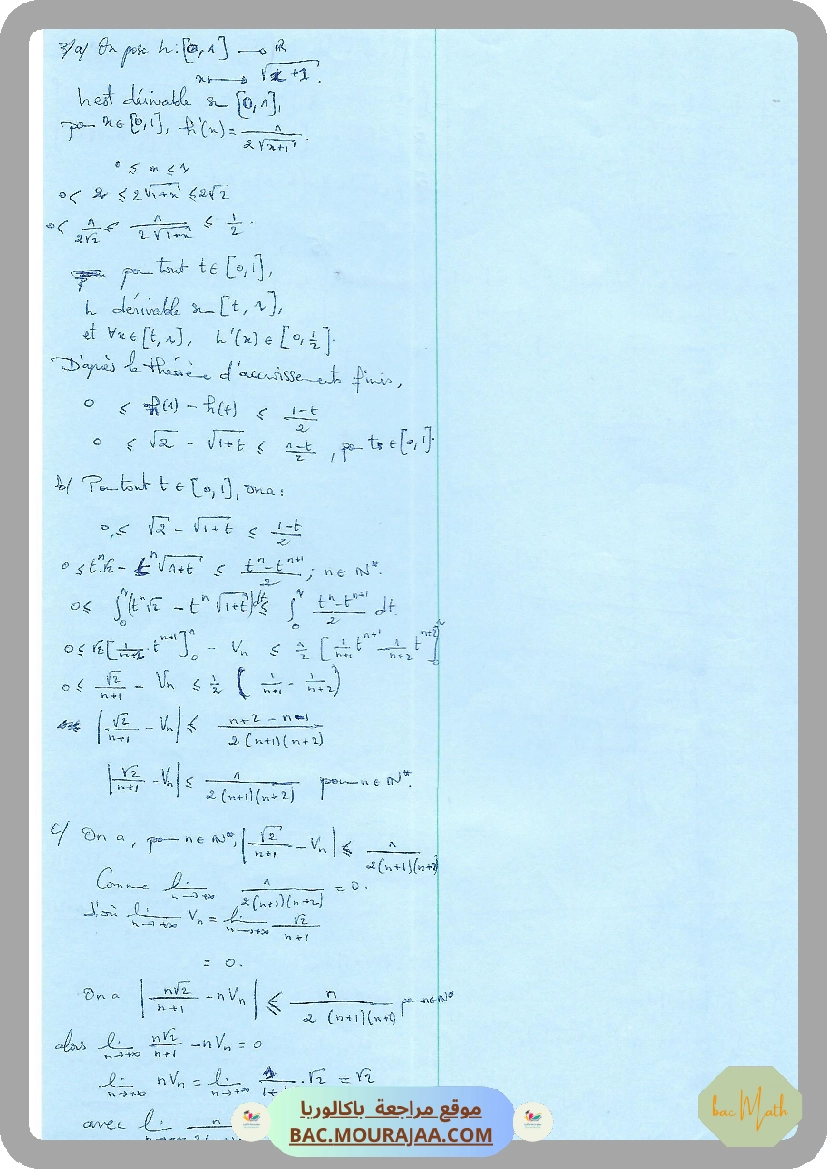 3/a/ On pose h: [0,1] → ℝ
x ↦ √(x+1).
h est dérivable sur [0,1],
pour x ∈ [0,1], h'(x) = 1/(2√(x+1)).
0 ≤ x ≤ 1
0 < 2 ≤ 2√(1+x) ≤ 2√2
0 < 1/(2√2) ≤ 1/(2√(1+x)) ≤ 1/2.
pour tout t ∈ [0,1],
h dérivable sur [t,1],
et ∀x ∈ [t,1], h'(x) ∈ [0,1/2].
D'après le théorème d'accroissements finis,
0 ≤ h(1) - h(t) ≤ (1-t)/2
0 ≤ √2 - √(1+t) ≤ (1-t)/2, pour t ∈ [0,1].
b/ Pour tout t ∈ [0,1], on a :
0 ≤ √2 - √(1+t) ≤ (1-t)/2
0 ≤ tⁿ√2 - tⁿ√(1+t) ≤ (tⁿ - tⁿ⁺¹)/2 ; n ∈ ℕ*.
0 ≤ ∫₀¹ (tⁿ√2 - tⁿ√(1+t))dt ≤ ∫₀¹ (tⁿ - tⁿ⁺¹)/2 dt
0 ≤ √2[1/(n+1) tⁿ⁺¹]₀¹ - Vₙ ≤ 1/2 [1/(n+1) tⁿ⁺¹ - 1/(n+2) tⁿ⁺²]₀¹
0 ≤ √2/(n+1) - Vₙ ≤ 1/2 (1/(n+1) - 1/(n+2))
|√2/(n+1) - Vₙ| ≤ (n+2-n-1)/(2(n+1)(n+2))
|√2/(n+1) - Vₙ| ≤ 1/(2(n+1)(n+2)) pour n ∈ ℕ*.
c/ On a, pour n ∈ ℕ*, |√2/(n+1) - Vₙ| ≤ 1/(2(n+1)(n+2))
Comme lim n→+∞ 1/(2(n+1)(n+2)) = 0.
d'où lim n→+∞ Vₙ = lim n→+∞ √2/(n+1)
= 0.
On a |n√2/(n+1) - nVₙ| ≤ n/(2(n+1)(n+2)) pour n ∈ ℕ*
alors lim n→+∞ n√2/(n+1) - nVₙ = 0
lim n→+∞ nVₙ = lim n→+∞ .√2 = √2
avec lim
موقع مراجعة باكالوريا
BAC.MOURAJAA.COM
bac Math